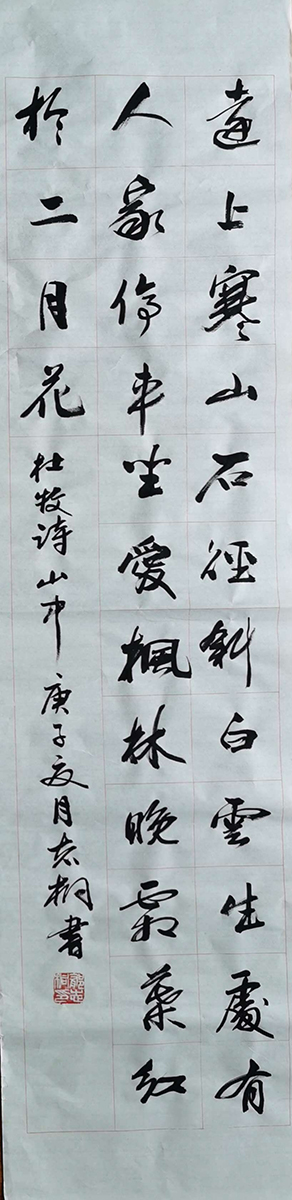 遠上寒山石徑斜白雲生處有
人家停車坐愛楓林晚霜葉紅
於二月花
杜牧诗山中庚子夏月志桐書